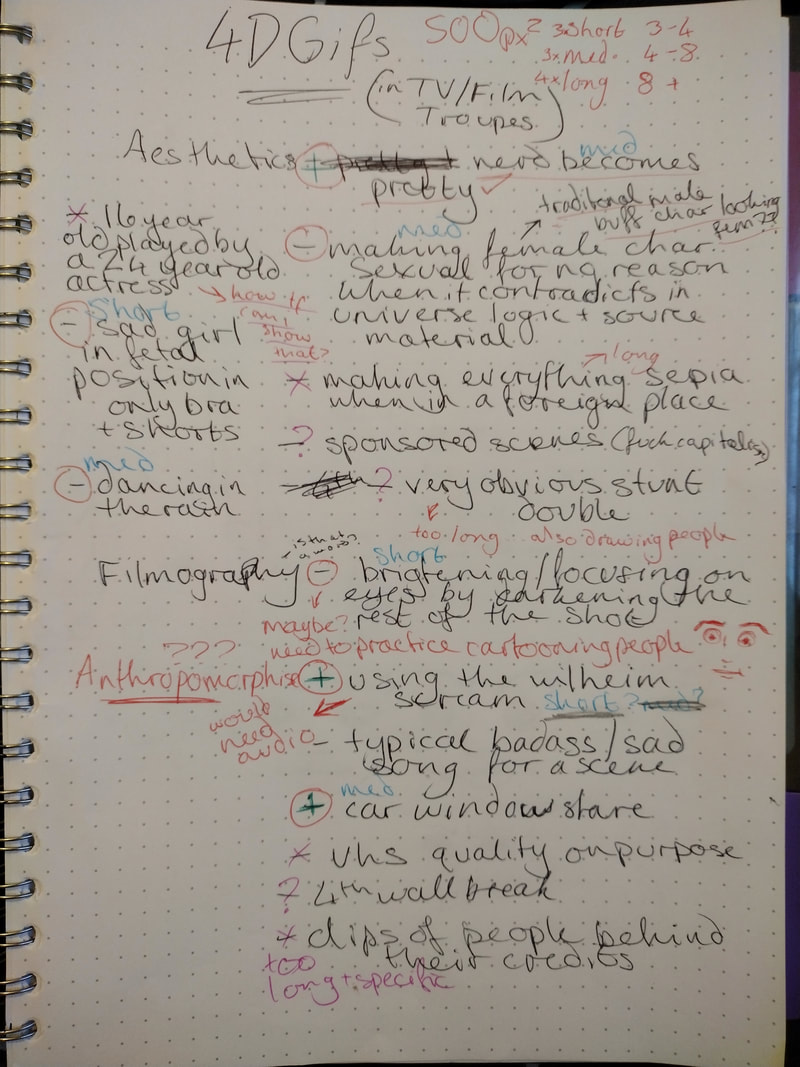 4D Gifs
500px² 3xshort 3-4
3x med. 4-8
4x long 8+
(in TV/Film
Troupes)
Aesthetics + nerd becomes
med
pretty ✓
traditional male
buff char looking
fem??
* 16 year
old played by
a 24 year old
actress
→ how tf
can I
show
that?
med
- making female char
sexual for no reason
when it contradicts in
universe logic + source
material
short
- sad girl
in fetal
position in
only bra
+ shorts
long
* making everything sepia
when in a foreign place
-? sponsored scenes (fuck capitalism)
med
- dancing in
the rain
? very obvious stunt
double
too long also drawing people
- is that
a word?
short
Filmography - brigtening/focusing on
eyes by darkening the
rest of the shot
maybe?
need to practice cartooning people
???
Anthropomorphise + using the wilheim
scream short?
would
need
audio
- typical badass/sad
song for a scene
med
+ car window stare
* vhs quality on purpose
? 4th wall break
* clips of people behind
their credits
too
long + specific